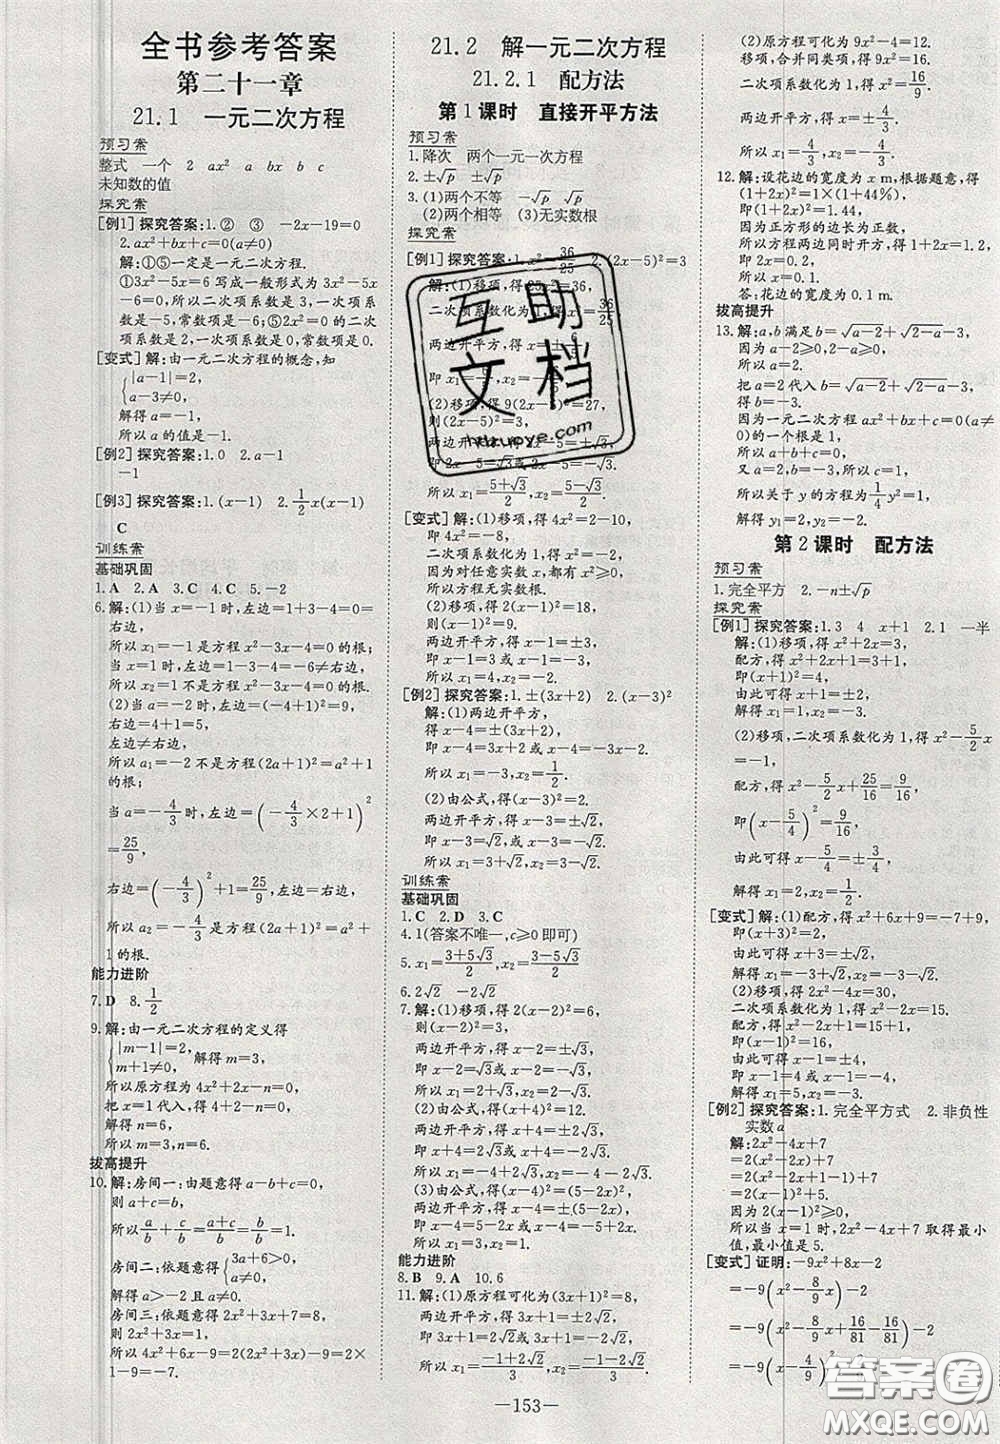 全书参考答案
第二十一章
21.1 一元二次方程
预习案
整式 一个 2 ax² a bx b c
未知数的值
探究案
[例1] 探究答案:1.② ③ -2x-19=0
2.ax²+bx+c=0(a≠0)
解:①⑤一定是一元二次方程.
①3x²-5x=6写成一般形式为3x²-5x
-6=0,所以二次项系数是3,一次项系数
是-5,常数项是-6;⑤2x²=0的二次项
系数是2,一次项系数是0,常数项是0.
[变式] 解:由一元二次方程的概念,知
{|a-1|=2,
a-3≠0,
解得a=-1,
所以a的值是-1.
[例2] 探究答案:1.0 2.a-1
-1
[例3] 探究答案:1.(x-1) 2.1/2x(x-1)
C
训练案
基础巩固
1.A 2.A 3.C 4.C 5.-2
6.解:(1)当x=-1时,左边=1+3-4=0=
右边,
所以x₁=-1是方程x²-3x-4=0的根;
当x=1时,左边=1-3-4=-6≠右边,
所以x₂=1不是方程x²-3x-4=0的根.
(2)当a=-2时,左边=(-4+1)²=9,
右边=4+1=5,
左边≠右边,
所以a₁=-2不是方程(2a+1)²=a²+1
的根;
当a=-4/3时,左边=(-4/3×2+1)²
=25/9,
右边=(-4/3)²+1=25/9,左边=右边,
所以a₂=-4/3是方程(2a+1)²=a²+
1的根.
能力进阶
7.D 8.1/2
9.解:由一元二次方程的定义得
{|m-1|=2, 解得m=3,
m+1≠0,
所以原方程为4x²+2x-n=0,
把x=1代入,得4+2-n=0,
解得n=6,
所以m=3,n=6.
拔高提升
10.解:房间一:由题意得a-b+c=0,
则a+c=b,
所以a/b+c/b=(a+c)/b=b/b=1.
房间二:依题意得{3a+6>0,
a≠0,
解得a>-2且a≠0.
房间三:依题意得2x²+3x+7=8,
则2x²+3x=1,
所以4x²+6x-9=2(2x²+3x)-9=2×
1-9=-7.
21.2 解一元二次方程
21.2.1 配方法
第1课时 直接开平方法
预习案
1.降次 两个一元一次方程
2.±√p ±√p
3.(1)两个不等 -√p √p
(2)两个相等 (3)无实数根
探究案
[例1] 探究答案:1.x²=36/25 2.(2x-5)²=3
解:(1)移项,得25x²=36,
二次项系数化为1,得x²=36/25
两边开平方,得x=±
即x₁= ,x₂=
(2)移项,得9(2x-5)²=27,
则(2x-5)²=3,
两边开平方,得2x-5=±√3,
即2x-5=√3或2x-5=-√3,
所以x₁=(5+√3)/2,x₂=(5-√3)/2.
[变式] 解:(1)移项,得4x²=2-10,
即4x²=-8,
二次项系数化为1,得x²=-2,
因为对任意实数x,都有x²≥0,
所以此方程无实数根.
(2)移项,得2(x-1)²=18,
则(x-1)²=9,
两边开平方,得x-1=±3,
即x-1=3或x-1=-3,
所以x₁=4,x₂=-2.
[例2] 探究答案:1.±(3x+2) 2.(x-3)²
解:(1)两边开平方,
得x-4=±(3x+2),
即x-4=3x+2或x-4=-3x-2,
所以x₁=-3,x₂=1/2.
(2)由公式,得(x-3)²=2,
两边开平方,得x-3=±√2,
即x-3=√2或x-3=-√2,
所以x₁=3+√2,x₂=3-√2.
训练案
基础巩固
1.C 2.D 3.C
4.1(答案不唯一,c≥0即可)
5.x₁=(3+5√3)/3,x₂=(3-5√3)/3
6.2√2 -2√2
7.解:(1)移项,得2(x-2)²=6,
则(x-2)²=3,
两边开平方,得x-2=±√3,
即x-2=√3或x-2=-√3,
所以x₁=2+√3,x₂=2-√3.
(2)由公式,得(x+4)²=2,
两边开平方,得x+4=±√2,
即x+4=√2或x+4=-√2,
所以x₁=-4+√2,x₂=-4-√2.
(3)移项,得(x-4)²=(5-2x)²,
两边开平方,得x-4=±(5-2x),
即x-4=5-2x或x-4=-(5-2x),
所以x₁=3,x₂=1.
能力进阶
8.B 9.A 10.6
11.解:(1)原方程可化为(1+3x)²=8,
两边开平方,得1+3x=±2√2,
即1+3x=2√2或1+3x=-2√2,
所以x₁=(-1+2√2)/3,x₂=(-1-2√2)/3.
(2)原方程可化为9x²-4=12.
移项,合并同类项,得9x²=16.
二次项系数化为1,得x²=16/9.
两边开平方,得x=±4/3.
所以x₁=4/3,x₂=-4/3.
12.解:设花边的宽度为x m,根据题意,得
(1+2x)²=1×(1+44%),
即(1+2x)²=1.44,
因为正方形的边长为正数,
所以两边同时开方,得1+2x=1.2,
即2x=0.2,
所以x=0.1.
答:花边的宽度为0.1 m.
拔高提升
13.解:a,b满足b=√(a-2)+√(2-a)-3,
因为a-2≥0,2-a≥0,
所以a=2.
把a=2代入b=√(a-2)+√(2-a)-3,
得b=-3.
因为一元二次方程ax²+bx+c=0(a≠0)
的一个根是1,
所以a+b+c=0,
又a=2,b=-3,所以c=1.
所以关于y的方程为1/4y²-1=0,
解得y₁=2,y₂=-2.
第2课时 配方法
预习案
1.完全平方 2.-n±√p
探究案
[例1] 探究答案:1.3 4 x+1 2.1 一半
解:(1)移项,得x²+2x=3,
配方,得x²+2x+1=3+1,
即(x+1)²=4,
由此可得x+1=±2,
解得x₁=1,x₂=-3.
(2)移项,二次项系数化为1,得x²-5/2x
=-1,
配方,得x²-5/2x+25/16=9/16,
即(x-5/4)²=9/16,
由此可得x-5/4=±3/4,
解得x₁=2,x₂=1/2.
[变式] 解:(1)配方,得x²+6x+9=-7+9,
即(x+3)²=2,
由此可得x+3=±√2,
解得x₁=-3+√2,x₂=-3-√2.
(2)移项,得2x²-4x=30,
二次项系数化为1,得x²-2x=15,
配方,得x²-2x+1=15+1,
即(x-1)²=16,
由此可得x-1=±4,
解得x₁=5,x₂=-3.
[例2] 探究答案:1.完全平方式 2.非负性
实数a
解:2x²-4x+7
=2(x²-2x)+7
=2(x²-2x+1-1)+7
=2(x-1)²-2+7
=2(x-1)²+5.
因为2(x-1)²≥0,
所以当x=1时,2x²-4x+7取得最小
值,最小值是5.
[变式] 证明:-9x²+8x-2
=-9(x²-8/9x)-2
=-9(x²-8/9x+16/81-16/81)-2
互助
文档
答案圈
MXQE.COM
—153—